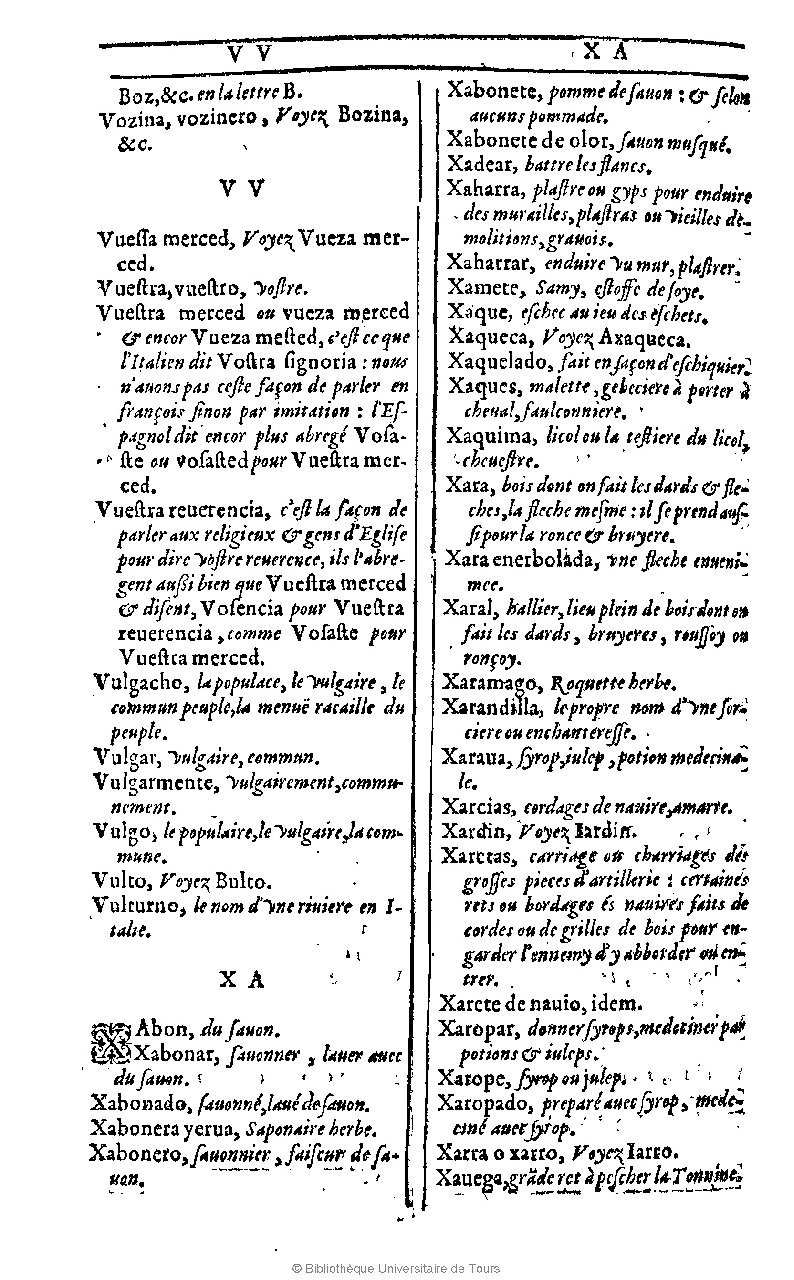 V V
X A
Boz,&c. en la lettre B.
Vozina, vozinero, Voyez Bozina,
&c.
V V
Vueſſa merced, Voyez Vueza mer-
ced.
Vueſtra, vueſtro, voſtre.
Vueſtra merced ou vueza merced
& encor Vueza meſted, c'eſt ce que
l'Italien dit Voſtra ſignoria : nous
n'auons pas ceſte façon de parler en
françois ſinon par imitation : l'Eſ-
pagnol dit encor plus abregé Voſa-
ſte ou voſaſted pour Vueſtra mer-
ced.
Vueſtra reuerencia, c'eſt la façon de
parler aux religieux & gens d'Egliſe
pour dire voſtre reuerence, ils l'abre-
gent auſsi bien que Vueſtra merced
& diſent, Voſencia pour Vueſtra
reuerencia, comme Voſaſte pour
Vueſtra merced.
Vulgacho, la populace, le vulgaire, le
commun peuple, la menuë racaille du
peuple.
Vulgar, vulgaire, commun.
Vulgarmente, vulgairement, commu-
nement.
Vulgo, le populaire, le vulgaire, la com-
mune.
Vulto, Voyez Bulto.
Vulturno, le nom d'vne riuiere en I-
talie.
X A
XAbon, du ſauon.
Xabonar, ſauonner, lauer auec
du ſauon.
Xabonado, ſauonné, laué de ſauon.
Xabonera yerua, Saponaire herbe.
Xabonero, ſauonnier, faiſeur de ſa-
uon.
Xabonete, pomme de ſauon : & ſelon
aucuns pommade.
Xabonete de olor, ſauon muſqué.
Xadear, battre les flancs.
Xaharra, plaſtre ou gyps pour enduire
des murailles, plaſtras ou vieilles de-
molitions, grauois.
Xaharrar, enduire vu mur, plaſtrer.
Xamete, Samy, eſtoffe de ſoye.
Xaque, eſchec au ieu des eſchets.
Xaqueca, Voyez Axaqueca.
Xaquelado, fait en façon d'eſchiquier.
Xaques, malette, gebeciere à porter à
cheual, faulconniere.
Xaquima, licol ou la teſtiere du licol,
cheueſtre.
Xara, bois dont on fait les dards & fle-
ches, la fleche meſme : il ſe prend auſ-
ſi pour la ronce & bruyere.
Xara enerbolada, vne fleche enueni-
mee.
Xaral, hallier, lieu plein de bois dont on
fait les dards, bruyeres, rouſſoy ou
ronçoy.
Xaramago, Roquette herbe.
Xarandilla, le propre nom d'vne ſor-
ciere ou enchantereſſe.
Xaraua, ſyrop, iulep, potion medecina-
le.
Xarcias, cordages de nauire, amarre.
Xardin, Voyez Iardin.
Xaretas, carriage ou charriages des
groſſes pieces d'artillerie : certaines
rets ou bordages és nauires faits de
cordes ou de grilles de bois pour en-
garder l'ennemy d'y abborder ou en-
trer.
Xarete de nauio, idem.
Xaropar, donner ſyrops, medeciner par
potions & iuleps.
Xarope, ſyrop ou julep.
Xaropado, preparé auec ſyrop, mede-
ciné auec ſyrop.
Xarra o xarro, Voyez Iarro.
Xauega, grãde ret à peſcher la Tonnine.
© Bibliothèque Universitaire de Tours